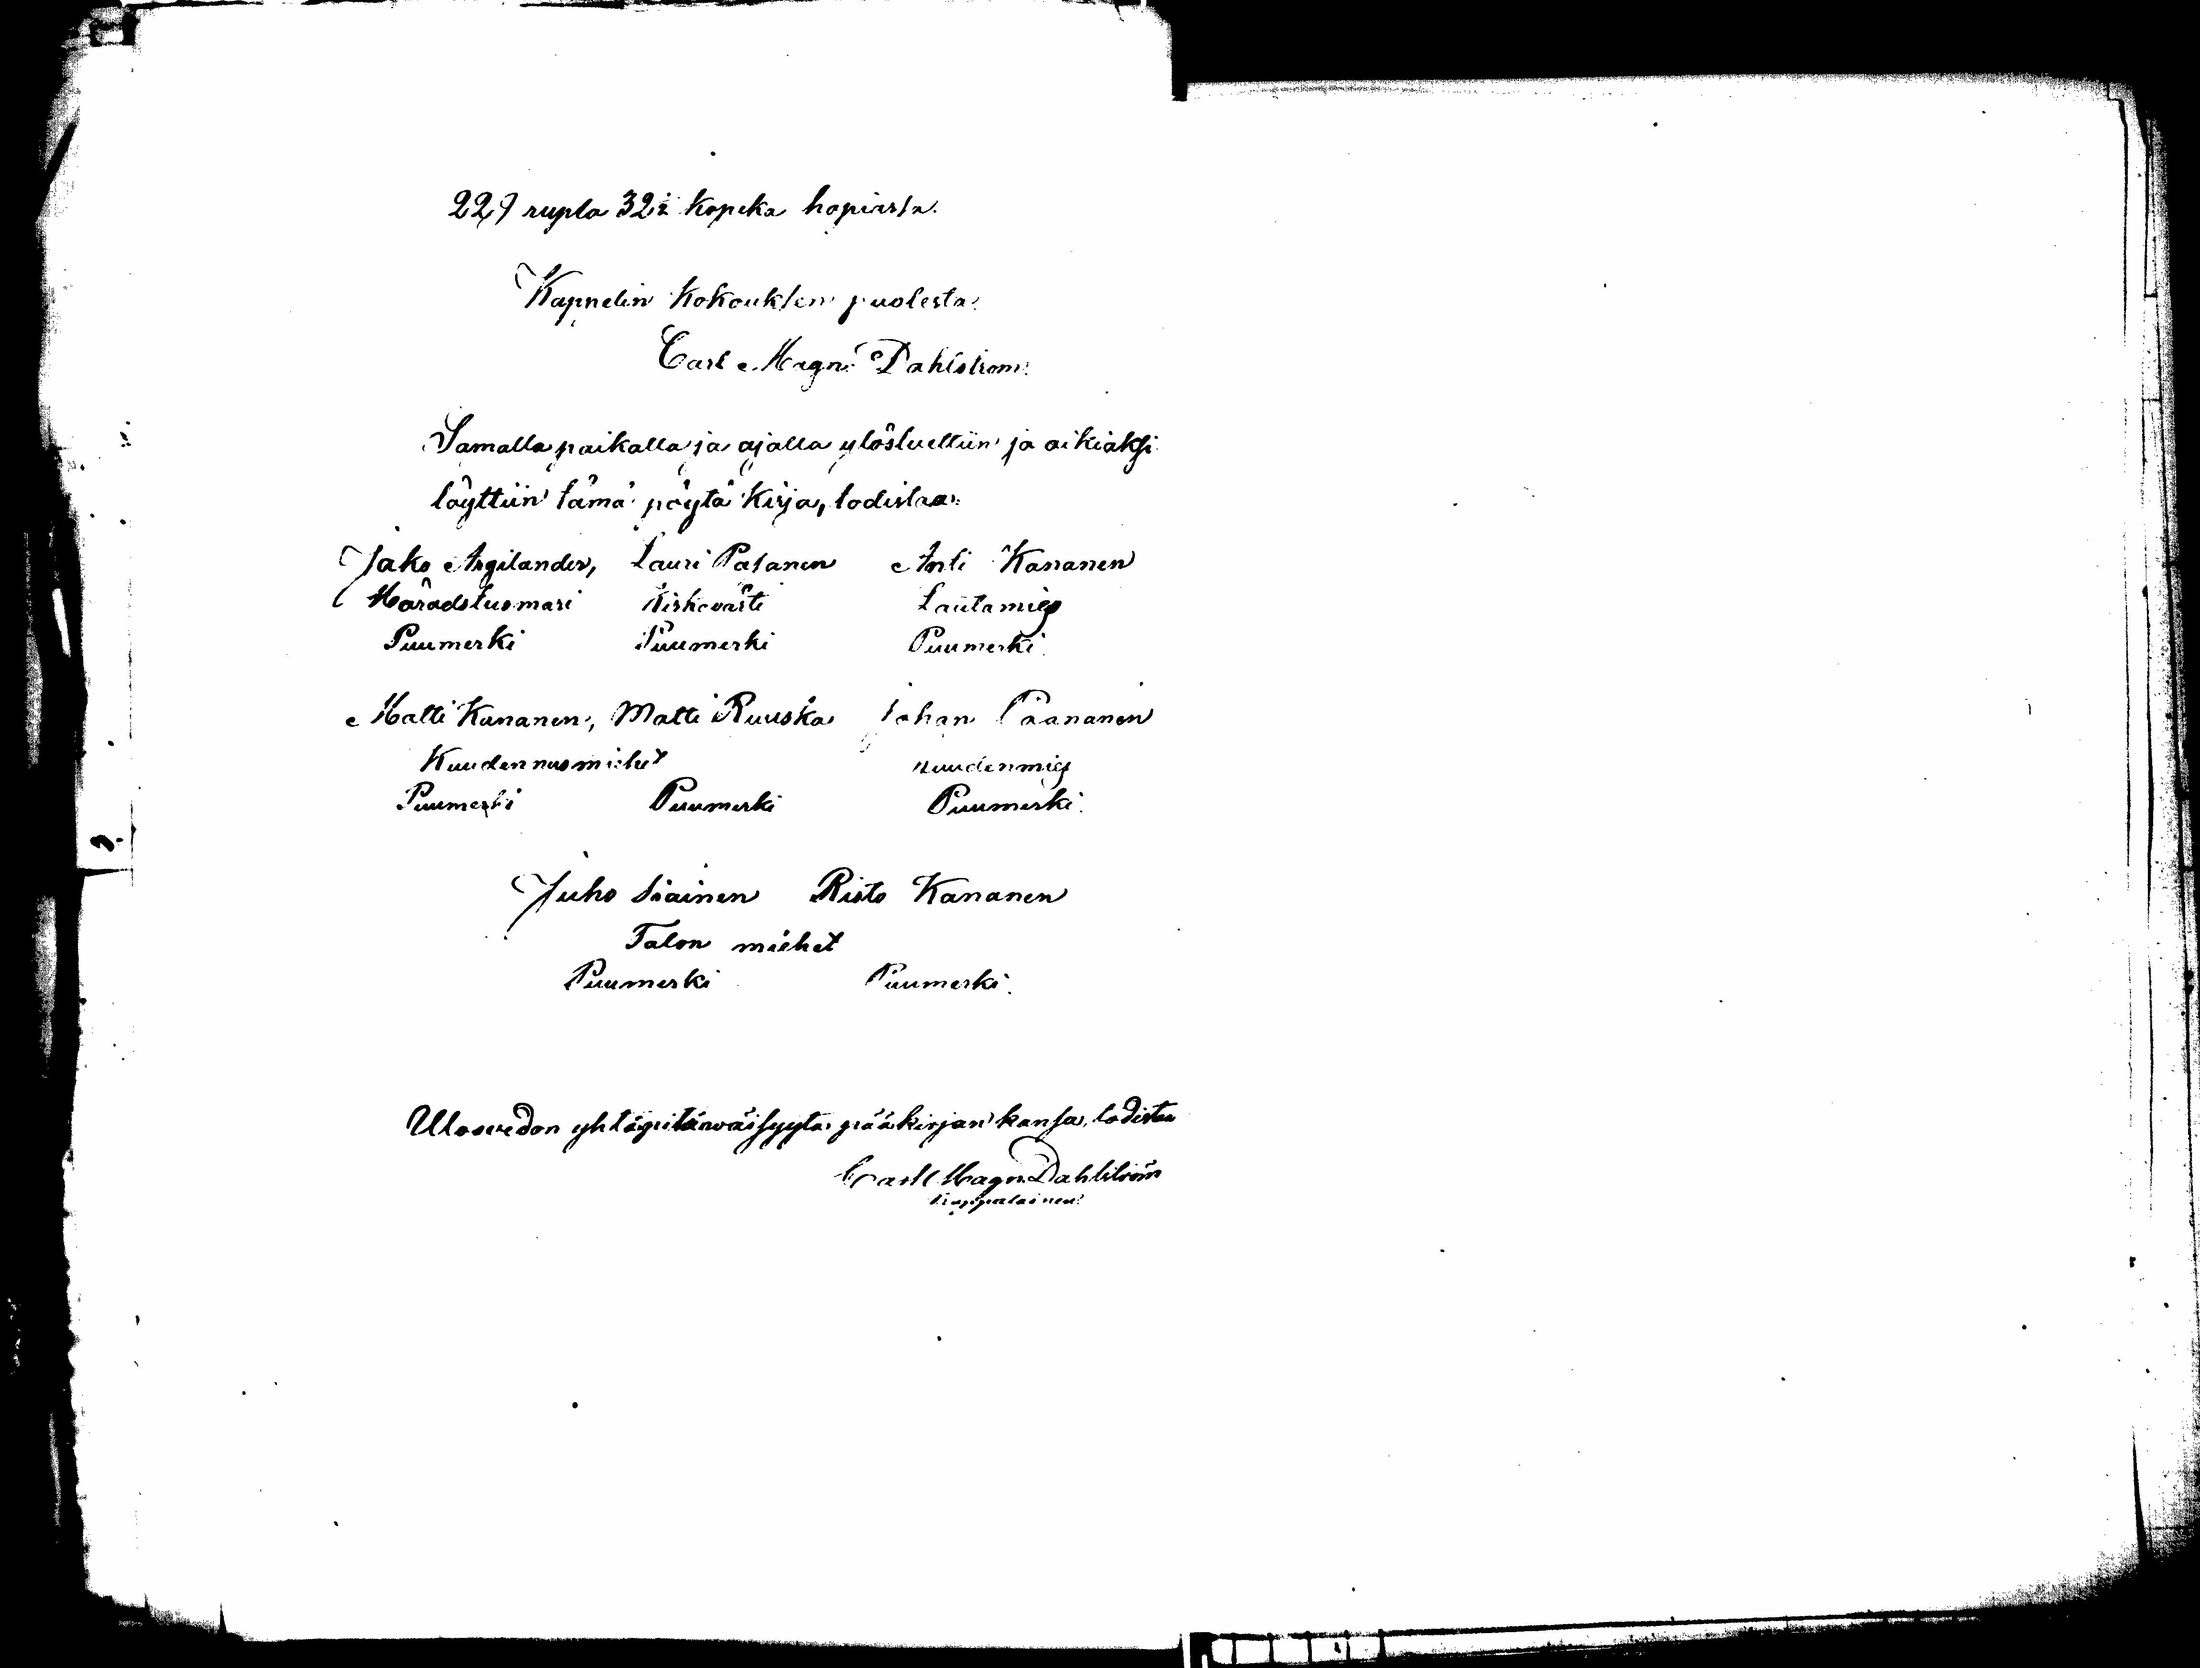 227 rupla 32½ kopeka hopiassa.
Kappelin kokouksen puolesta:
Carl Magn. Dahlström.
Samalla paikalla ja ajalla ylösluettiin ja oikiaksi
löyttiin tämä pöytä kirja, todistaa:
Jako Argilander, Lauri Patanen Anti Kananen
Häradstuomari Kirkovärti Lautamies
Puumerki Puumerki Puumerki.
Matti Kananen, Matti Ruuska Johan Pänanen
Kuudennusmiehet kuudenmies
Puumerki Puumerki Puumerki.
Juho Siainen Risto Kananen
Talon miehet
Puumerki Puumerki.
Ulosvedon yhtäpitäwäisyyttä pääkirjan kansa, todistaa
Carl Magn. Dahlström
Kappalainen.